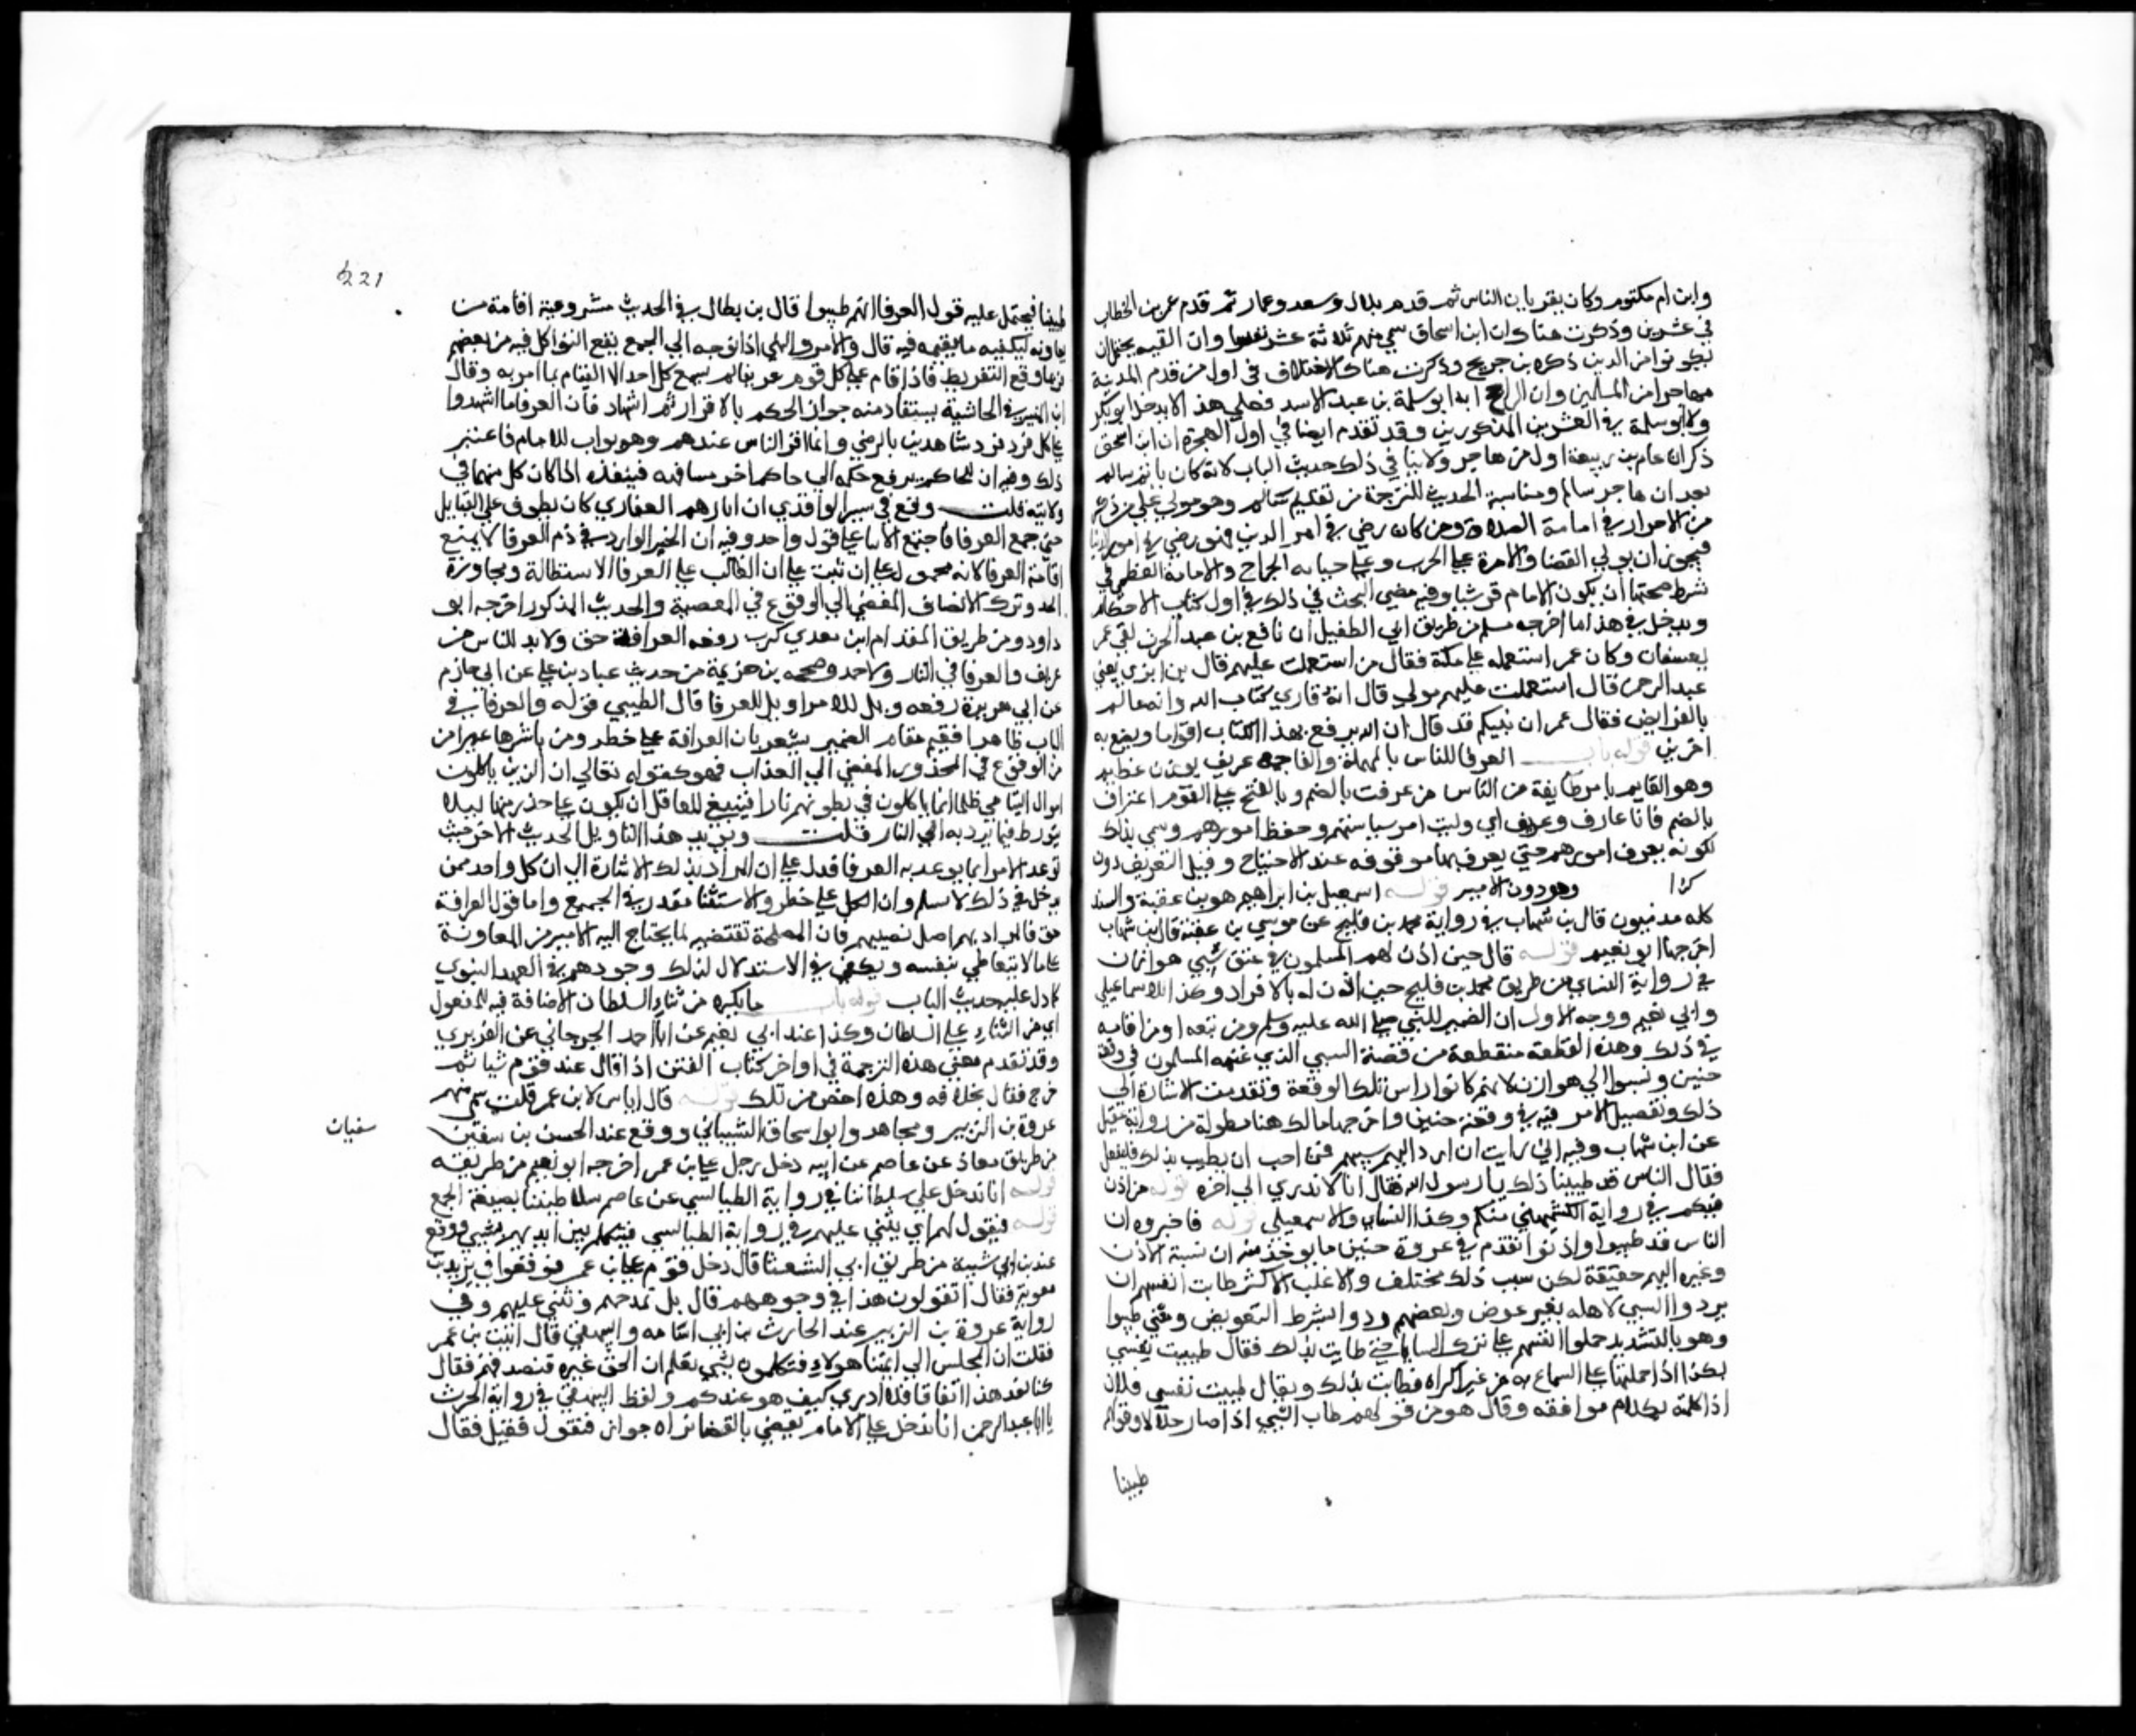 وابن ام مكتوم وكان يقريان الناس ثم قدم بلال وسعد وعمار ثم قدم عمر بن الخطاب
في عشرين وذكرت هناك ان ابن اسحاق سمي منهم ثلاثة عشر نفسا وان البقية يحتمل ان
يكونوا من الذين ذكره بن جريج وذكرت هناك الاختلاف في اول من قدم المدينة
مهاجرا من المسلمين وان الراجح انه ابو سلمة بن عبد الاسد فعلي هذا لا يدخل ابو بكر
ولا ابو سلمة في العشرين المذكورين وقد تقدم ايضا في اول الهجرة ان ابن اسحق
ذكر ان عامر بن ربيعة اول من هاجر ولا ينافي ذلك حديث الباب لانه كان ياتم بسالم
بعد ان هاجر سالم ومناسبة الحديث للترجمة من تقديم سالم وهو مولي علي من ذكر
من الاحرار في امامة الصلاة ومن كان رضي في امر الدين فهو رضي في امور الدنيا
فيجوز ان يولي القضا والامرة علي الحرب وعلي جباية الخراج والامامة العظمي في
شرط صحتها ان يكون الامام قرشيا وقد مضي البحث في ذلك في اول كتاب الاحكام
ويدخل في هذا ما اخرجه مسلم من طريق ابي الطفيل ان نافع بن عبد الحرث لقي عمر
بعسفان وكان عمر استعمله علي مكة فقال من استعملت عليهم قال بن ابزي يعني
عبد الرحمن قال استعملت عليهم مولي قال انه قاري لكتاب الله وانه عالم
بالفرايض فقال عمر ان نبيكم قد قال ان الله يرفع بهذا الكتاب اقواما ويضع به
اخرين قوله باب العرفا للناس بالمهملة والفا جمع عريف بوزن عظيم
وهو القايم بامر طايفة من الناس من عرفت بالضم وبالفتح علي القوم اعرف
بالضم فانا عارف وعريف اي وليت امر سياستهم وحفظ امورهم وسمي بذلك
لكونه يعرف امورهم حتي يعرف بها من فوقه عند الاحتياج وقيل العريف دون
كذا وهو دون الامير قوله اسمعيل بن ابراهيم هو بن عقبة والسند
كله مدنيون قال بن شهاب في رواية محمد بن فليح عن موسي بن عقبة قال بن شهاب
اخرجها ابو نعيم قوله قال حين اذن لهم المسلمون في عتق سبي هوازن
في رواية النساي من طريق محمد بن فليح حين اذن له بالافراد وكذا للاسماعيلي
وابي نعيم ووجه الاول ان الضمير للنبي صلي الله عليه وسلم ومن تبعه او من اقامه
في ذلك وهذه القطعة مقتطعة من قصة السبي الذي غنمه المسلمون في وقعة
حنين ونسبوا الي هوازن لانهم كانوا راس تلك الوقعة وتقدمت الاشارة الي
ذلك وتفصيل الامر فيه في وقعة حنين واخرجها مالك هنا مطولة من رواية عقيل
عن ابن شهاب وفيه اني رايت ان ارد اليهم سبيهم فمن احب ان يطيب بذلك فليفعل
فقال الناس قد طيبنا ذلك يا رسول الله فقال انا لا ندري الي اخره قوله من اذن
فيكم في رواية الكشميهني منكم وكذا للنساي والاسمعيلي قوله فاخبروه ان
الناس قد طيبوا واذنوا تقدم في غزوة حنين ما يوخذ منه ان نسبة الاذن
وغيره اليهم حقيقة لكن سبب ذلك مختلف والاغلب الاكثر طابت انفسهم ان
يردوا السبي لاهله بغير عوض وبعضهم رده بشرط التعويض ومعني طيبوا
وهو بالتشديد حملوا انفسهم علي ترك السبايا حتي طابت بذلك فقال طيبت نفسي
بكذا اذا حملتها علي السماع به من غير اكراه فطابت بذلك ويقال طيبت نفس فلان
اذا كلمته بكلام موافقه وقال هو من قولهم طاب الشي اذا صار حلالا وقوله
طيبنا
221
طيبنا فيحتمل عليه قول العرفا انهم طيبوا قال بن بطال في الحديث مشروعية اقامة من
يعاونه ليكفيه ما يقيمه فيه قال والامر والنهي اذا توجه الي الجمع يقع التواكل فيه من بعضهم
فربما وقع التفريط فاذا اقام علي كل قوم عريفا لم يسع كل احد الا القيام بما امر به وقال
ابن المنير في الحاشية يستفاد منه جواز الحكم بالاقرار ثم اشهاد فان العرفا ما اشهدوا
علي كل فرد فرد شاهدين بالرضي وانما اقر الناس عندهم وهو نواب للامام فاعتبر
ذلك وفيه ان الحاكم يرفع حكمه الي حاكم اخر مسافهه فينفذه اذا كان كل منهما في
ولايته قلت وقع في سير الواقدي ان ابا رهم الغفاري كان يطوف علي القبايل
حتي جمع العرفا فاجتمع الامنا علي قول واحد وفيه ان الخبر الوارد في ذم العرفا لا يمنع
اقامة العرفا لانه محمول علي ان ثبت علي ان الغالب علي العرفا الاستطالة ومجاوزة
الحد وترك الانصاف المفضي الي الوقوع في المعصية والحديث المذكور اخرجه ابو
داود من طريق المقدام ابن معدي كرب رفعه العرافة حق ولا بد للناس من
عريف والعرفا في النار ولاحمد وصححه بن خزيمة من حديث عباد بن علي عن ابي حازم
عن ابي هريرة رفعه ويل للامرا ويل للعرفا قال الطيبي قوله والعرفا في
الباب ظاهرا اقيم مقام الضمير يشعر بان العرافة علي خطر ومن باشرها غير امن
من الوقوع في المحذور المفضي الي العذاب فهو كقوله تعالي ان الذين ياكلون
اموال اليتامي ظلما انما ياكلون في بطونهم نارا فينبغي للعاقل ان يكون علي حذر منها ليلا
يتورط فيما يرد به الي النار قلت ويويد هذا التاويل الحديث الاخر حيث
توعد الامرا بما يوعد به العرفا فدل علي ان المراد بذلك الاشارة الي ان كل واحد ممن
يدخل في ذلك لا يسلم وان الكل علي خطر والاستثنا مقدر في الجميع واما قوله العرافة
حق فالمراد بهم اصل نصيبهم فان المصلحة تقتضيه لما يحتاج اليه الامير من المعاونة
علي ما لا يتعاطي بنفسه ويكفي في الاستدلال لذلك وجودهم في العهد النبوي
كما دل عليه حديث الباب قوله باب ما يكره من ثناء السلطان الاضافة فيه للمفعول
اي من الثناء علي السلطان وكذا عند ابي نعيم عن ابا احمد الجرجاني عن الفربري
وقد تقدم معني هذه الترجمة في اواخر كتاب الفتن اذا قال عند قوم شيا ثم
خرج فقال بخلافه وهذه اخص من تلك قوله قال اناس لابن عمر قلت سمي منهم
عروة بن الزبير ومجاهد وابو اسحاق الشيباني ووقع عند الحسن بن سفين
سفيان
من طريق معاذ عن عاصم عن ابيه دخل رجل علي ابن عمر اخرجه ابو نعيم من طريقه
قوله انا ندخل علي سلطاننا في رواية الطيالسي عن عاصم سلاطيننا بصيغة الجمع
قوله فنقول لهم اي نثني عليهم في رواية الطيالسي فنتكلم بين ايديهم بشي ووقع
عند بن ابي شيبة من طريق ابي الشعثا قال دخل قوم علي ابن عمر فوقعوا في يزيد بن
معوية فقال اتقولون هذا في وجوههم قال بل نمدحهم ونثني عليهم وفي
رواية عروة بن الزبير عند الحارث بن ابي اسامه والبيهقي قال اتيت بن عمر
فقلت انا نجلس الي ايمتنا هولاء فيتكلمون بشي نعلم ان الحق غيره فنصدقهم فقال
كنا نعد هذا نفاقا فلا ادري كيف هو عندكم ولفظ البيهقي في رواية الحرث
يا ابا عبد الرحمن انا ندخل علي الامام يقضي بالقضا نراه جوار فنقول فقيل فقال